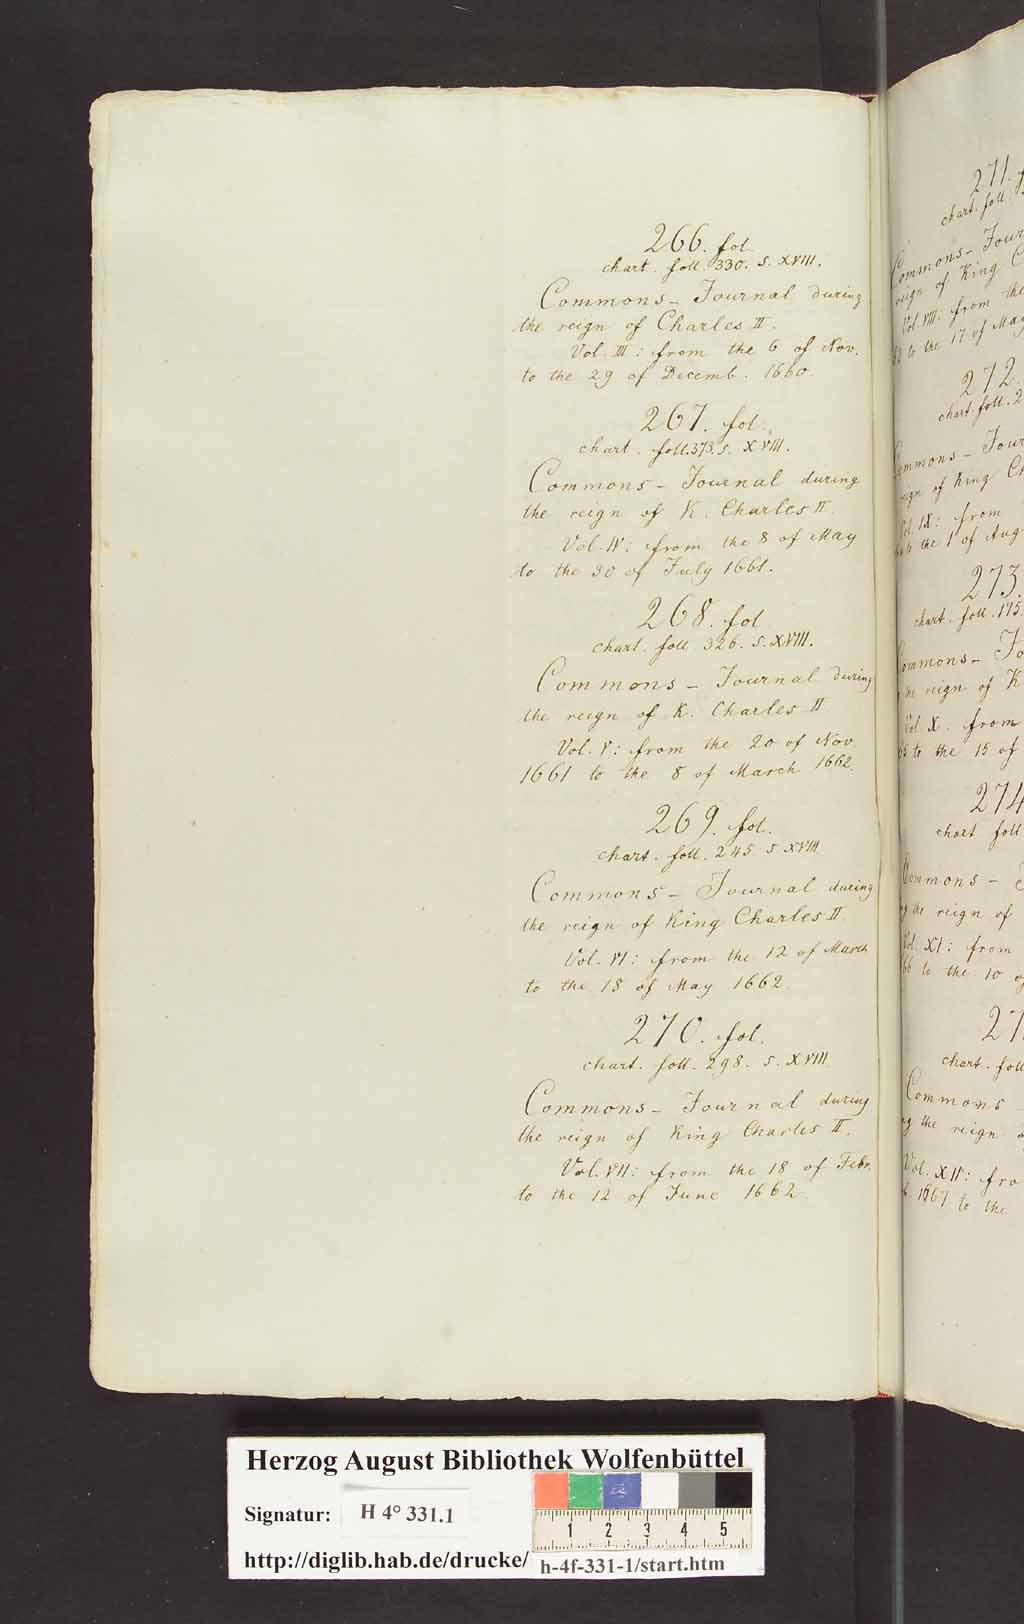 266. fol.
chart. foll. 330. s. XVIII.
Commons - Journal during
the reign of Charles II.
Vol. III: from the 6 of Nov.
to the 29 of Decemb. 1660.
267. fol.
chart. foll. 373. s. XVIII.
Commons - Journal during
the reign of K. Charles II.
Vol. IV: from the 8 of May
to the 30 of July 1661.
268. fol
chart. foll. 326. s. XVIII.
Commons - Journal during
the reign of K. Charles II
Vol. V: from the 20 of Nov.
1661 to the 8 of March 1662.
269. fol.
chart. foll. 245 s XVIII
Commons - Journal during
the reign of King Charles II.
Vol. VI: from the 12 of March
to the 18 of May 1662.
270. fol.
chart. foll. 298. s. XVIII.
Commons - Journal during
the reign of King Charles II.
Vol. VII: from the 18 of Febr.
to the 12 of June 1662.
271.
chart. foll.
Commons - Jour
reign of King C
Vol. VIII: from the
to the 17 of May
272.
chart. foll. 2
Commons - Jour
reign of King Ch
Vol. IX: from
the 1 of Aug
273.
chart. foll. 175
Commons - Jo
the reign of K
Vol X. from
to the 15 of
274
chart foll
Commons -
the reign of
Vol. XI: from
66 to the 10 of
27
chart. foll
Commons -
the reign
Vol. XIV: fro
1667 to the
Herzog August Bibliothek Wolfenbüttel
Signatur: H 4° 331.1
1 2 3 4 5
http://diglib.hab.de/drucke/ h-4f-331-1/start.htm